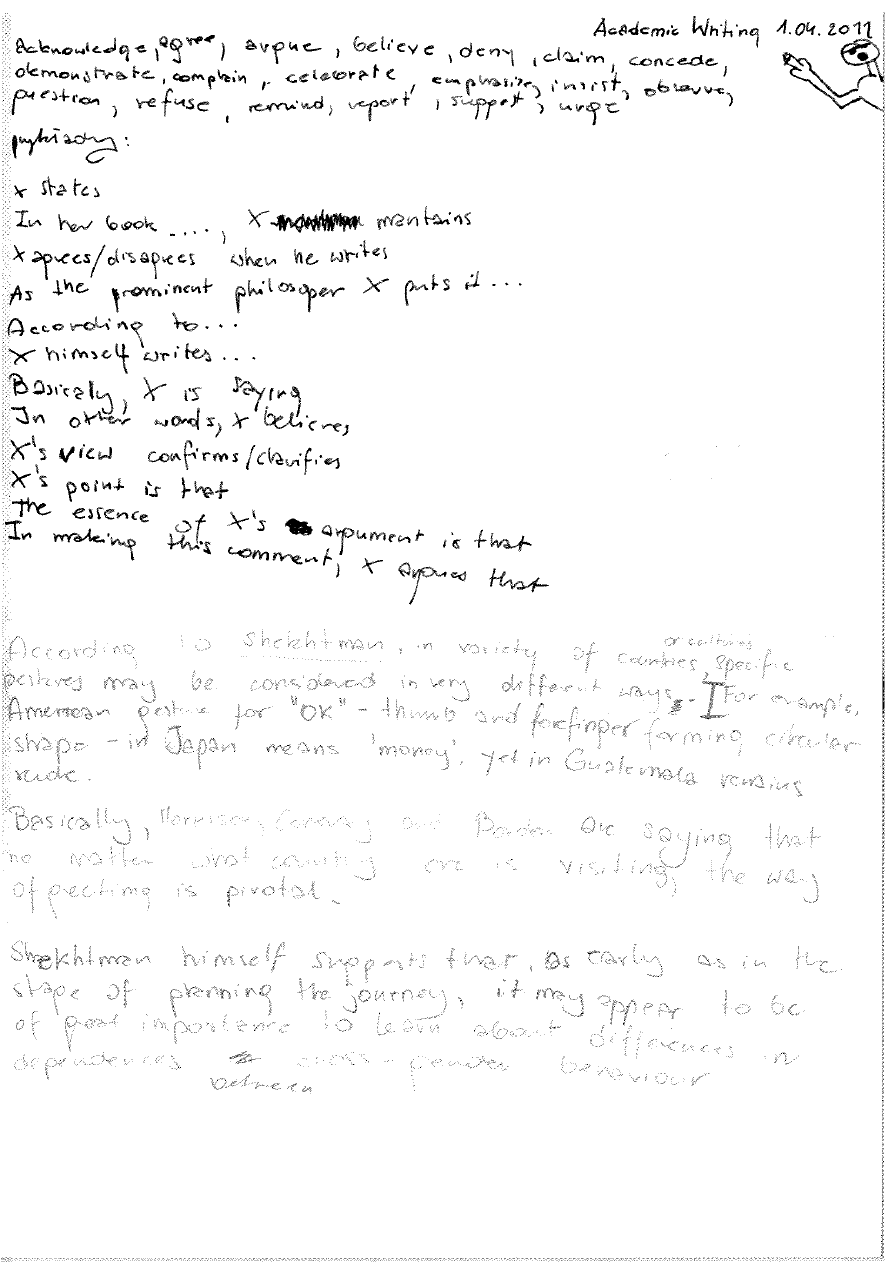 Academic Writing 1.04.2011
Acknowledge, agree, argue, believe, deny, claim, concede,
demonstrate, complain, celebrate, emphasize, insist, observe,
question, refuse, remind, report, support, urge
przykłady:
X states
In her book ...., X mantains
X agrees/disagrees when he writes
As the prominent philosoper X puts it...
According to...
X himself writes...
Basicaly, X is saying
In other words, X believes
X's view confirms/clarifies
X's point is that
The essence of X's argument is that
In making this comment, X argues that
According to Shekhtman, in variety of countries or cultures, specific
gestures may be considered in very different ways. For example,
American gesture for "OK" - thumb and forfinger forming circular
shape - in Japan means 'money', yet in Guatemala remains
rude.
Basically, Morrison, Conaway and Borden are saying that
no matter what country one is visiting, the way
of greeting is pivotal.
Shekhtman himself supports that, as early as in the
stage of planning the journey, it may appear to be
of great importance to learn about differences in
dependences between cross-gender behaviour